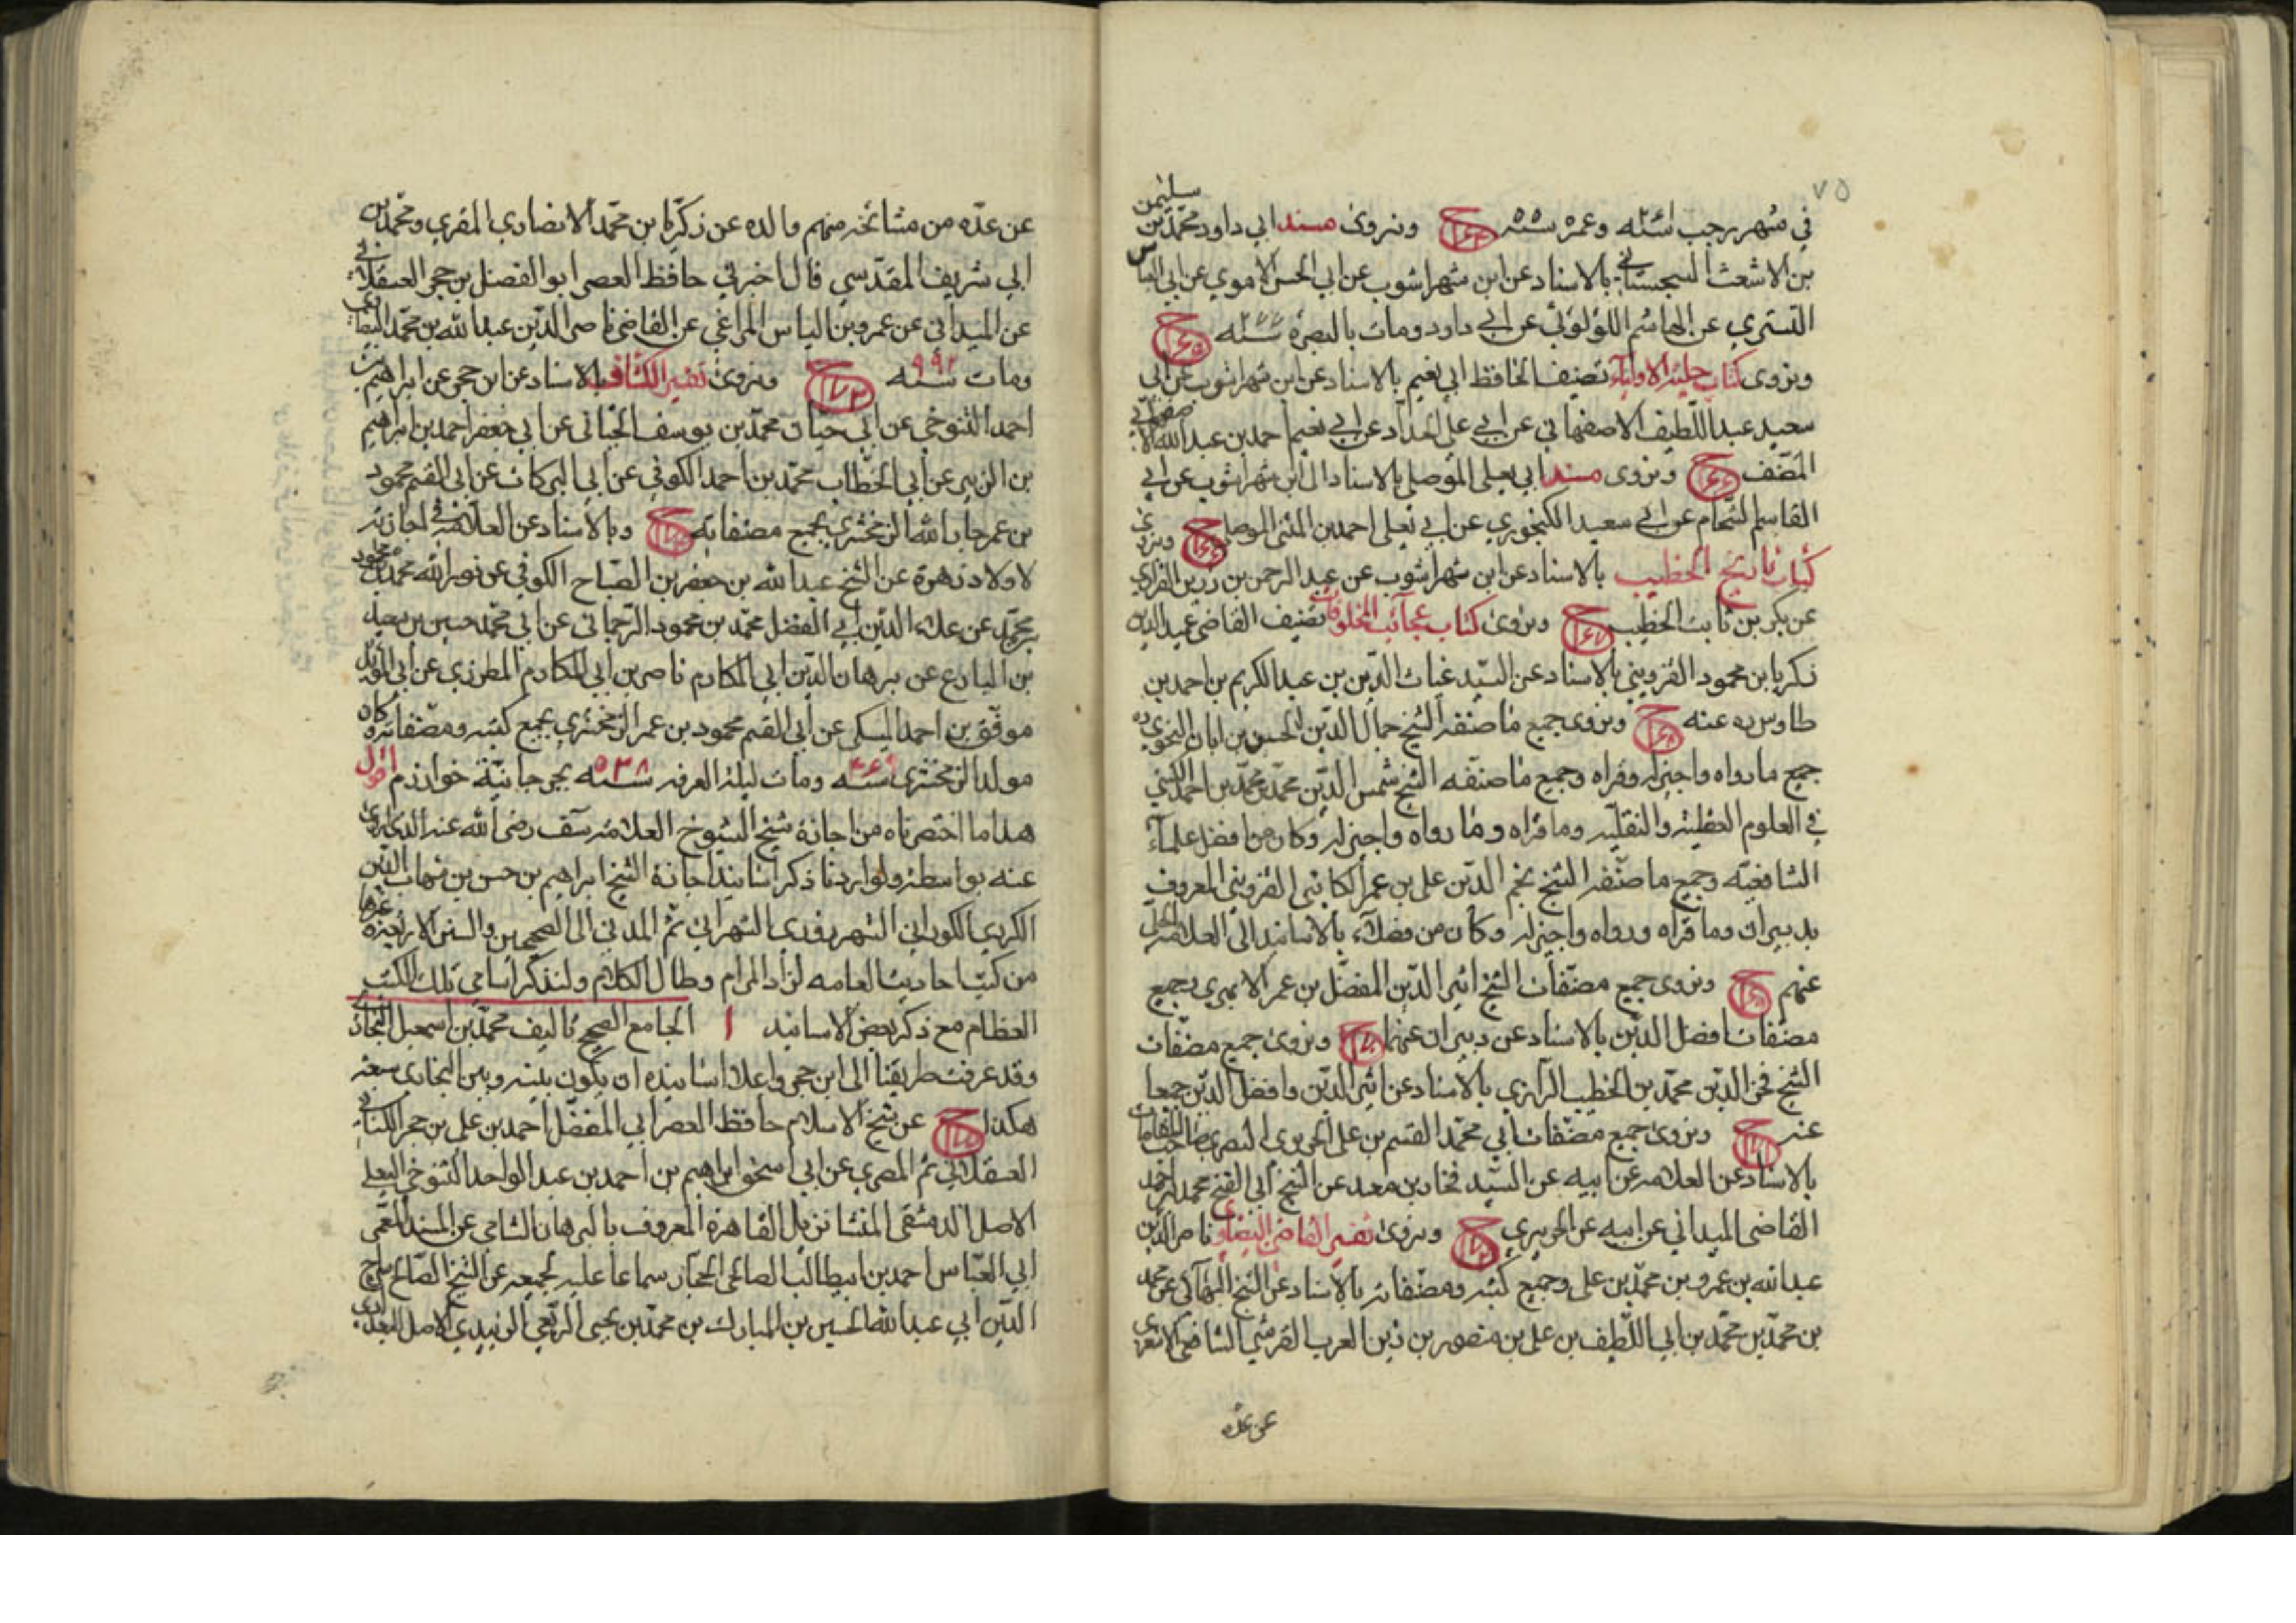 ٧٥
في شهر رجب سنة وعمره سنه ح ونروي مسند ابي داود محمد بن سليمن
بن الاشعث السجستاني بالاسناد عن ابن شهراشوب عن ابي الحسن الاموي عن ابي العباس
التستري عن الهاشم اللؤلؤئي عن ابي داود ومات بالبصرة سنه ٢٧٧ ح ١٦٥
ونروي كتاب حلية الاولياء تصنيف الحافظ ابي نعيم بالاسناد عن ابن شهراشوب عن ابي
سعيد عبد اللطيف الاصفهاني عن ابي علي الحداد عن ابي نعيم احمد بن عبد الله الاصفهاني
المصنف ح ونروي مسند ابي يعلى الموصلي بالاسناد الى ابن شهراشوب عن ابي
القاسم الشحام عن ابي سعيد الكنجوري عن ابي يعلى احمد بن المثنى الموصلي ح ونروي
كتاب تاريخ الخطيب بالاسناد عن ابن شهراشوب عن عبد الرحمن بن زريق القزاري
عن بكر بن ثابت الخطيب ح ١٦٧ ونروي كتاب عجائب المخلوقات تصنيف القاضي عميد الدين
زكريا بن محمود القزويني بالاسناد عن السيد غياث الدين بن عبد الكريم بن احمد بن
طاوس ره عنه ح ١٦٨ ونروي جميع ما صنفه الشيخ جمال الدين الحسين بن ابان النحوي
جميع ما رواه واجيز له وقراه وجميع ما صنفه الشيخ شمس الدين محمد بن محمد بن احمد الكيشي
في العلوم العقلية والنقلية وما قراه وما رواه واجيز له وكان من افضل علماء
الشافعية وجميع ما صنفه الشيخ نجم الدين علي بن عمر الكاتبي القزويني المعروف
بدبيران وما قراه ورواه واجيز له وكان من فضلاء بالاسانيد الى العلامة الحلي
عنهم ح ونروي جميع مصنفات الشيخ اثير الدين المفضل بن عمر الابهري وجميع
مصنفات افضل الدين بالاسناد عن دبيران عنهما ح ونروي جميع مصنفات
الشيخ فخر الدين محمد بن الخطيب الرازي بالاسناد عن اثير الدين وافضل الدين جمعا
عنه ح ١٧١ ونروي جميع مصنفات ابي محمد القسم بن علي الحريري البصري صاحب المقامات
بالاسناد عن العلامة عن ابيه عن السيد فخار بن معد عن الشيخ ابي الفتح محمد بن احمد
القاضي الميداني عن ابيه عن الحريري ح ١٧٢ ونروي تفسير القاضي البيضاوي ناصر الدين
عبد الله بن عمرو بن محمد بن علي وجميع كتبه ومصنفاته بالاسناد عن الشيخ البهائي عن محمد
بن محمد بن محمد بن ابي اللطيف بن علي بن منصور بن زين العرب القرشي الشافعي الاشعري
عن عدة
عن عدة من مشائخه منهم والده عن زكريا بن محمد الانصاري المقري ومحمد بن
ابي شريف المقدسي قال اخبرني حافظ العصر ابو الفضل بن حجر العسقلاني
عن الميداني عن عمرو بن الياس المراغي عن القاضي ناصر الدين عبد الله بن محمد البيضاوي
ومات سنه ٩٩٢ ح ١٧٣ ونروي تفسير الكشاف بالاسناد عن ابن حجر عن ابراهيم بن
احمد التنوخي عن ابي حيان محمد بن يوسف الجياني عن ابي جعفر احمد بن ابراهيم
بن الزبير عن ابي الخطاب محمد بن احمد الكوفي عن ابي البركات عن ابي القسم محمود
بن عمر جار الله الزمخشري بجميع مصنفاته ح وبالاسناد عن العلامة في اجازته
لاولاد زهرة عن الشيخ عبد الله بن جعفر بن الصباح الكوفي عن نور الله محمد بن محمود
بن محمد عن علاء الدين ابي الفضل محمد بن محمود الترجماني عن ابي محمد حسين بن سعيد
بن البارع عن برهان الدين ابي المكارم ناصر بن ابي المكارم المطرزي عن ابي المؤيد
موفق بن احمد المكي عن ابي القسم محمود بن عمر الزمخشري بجميع كتبه ومصنفاته وكان
مولد الزمخشري سنه ومات ليلة العرفه سنه ٥٣٨ بجرجانية خوارزم اقول
هذا ما اختصرناه من اجازة شيخ الشيوخ العلامة رضي الله عنه الذي اروي
عنه بواسطة ولو اردنا ذكر اسانيد اجازة الشيخ ابراهيم بن حسن بن شهاب الدين
الكردي الكوراني الشهرزوري الشهراني ثم المدني الى الصحيحين والسنن الاربعة وغيرها
من كتب احاديث العامه لزاد المرام وطال الكلام ولنذكر اسامي تلك الكتب
العظام مع ذكر بعض الاسانيد ا الجامع الصحيح تاليف محمد بن اسمعيل البخاري
وقد عرفت طريقنا الى ابن حجر واعلا اسانيده ان يكون بينه وبين البخاري سبعة
هكذا ح عن شيخ الاسلام حافظ العصر ابي المفضل احمد بن علي بن حجر الكناني
العسقلاني ثم المصري عن ابي اسحق ابراهيم بن احمد بن عبد الواحد التنوخي البعلي
الاصل الدمشقي المنشا نزيل القاهرة المعروف بالبرهان الشامي عن المسند المعمر
ابي العباس احمد بن ابيطالب الصالحي الحجار سماعا عليه لجميعه عن الشيخ الصالح سراج
الدين ابي عبد الله الحسين بن المبارك بن محمد بن يحيى الربعي الزبيدي الاصل البغدادي